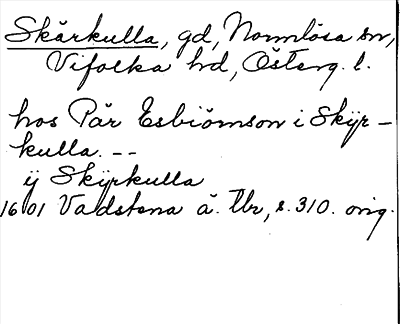 Skärkulla, gd, Normlösa sn,
Vifolka hd, Österg. l.
hos Pär Esbiörnson i Skÿr-
kulla. --
ij Skÿrkulla
1601 Vadstena ä. Tbr, s. 310. orig.